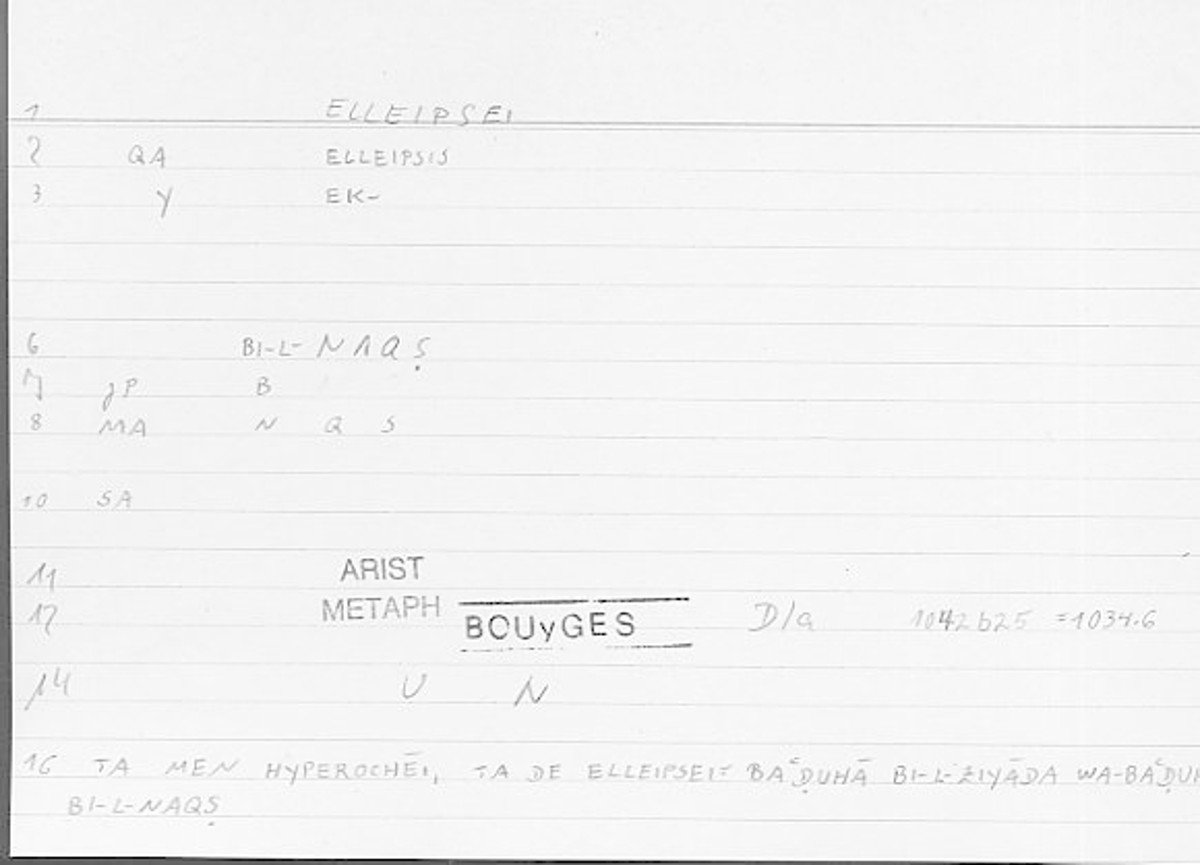 1 ELLEIPSEI
2 QA ELLEIPSIS
3 Y EK-
6 BI-L-NAQṢ
7 JP B
8 MA N Q S
10 SA
11 ARIST
12 METAPH BOUyGES D/a 1042b25 =1034.6
14 U N
16 TA MEN HYPEROCHĒI, TA DE ELLEIPSEI= BAʿḌUHĀ BI-L-ZIYĀDA WA-BAʿḌUH
BI-L-NAQṢ